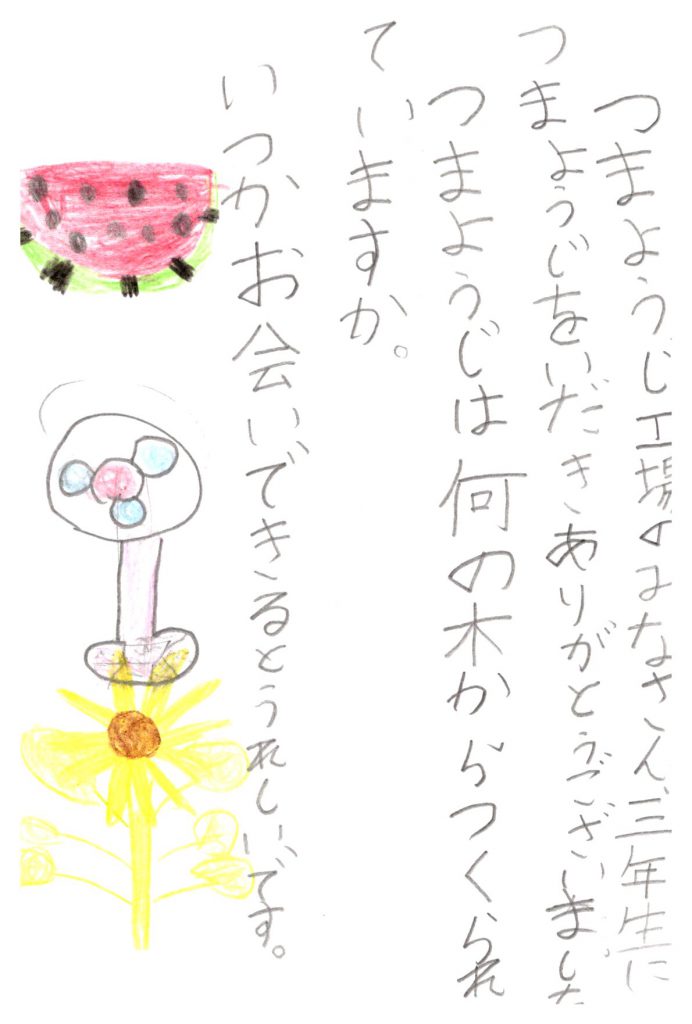 つまようじ工場のみなさん、三年生に
つまようじをいだきありがとうございました
つまようじは何の木からつくられ
ていますか。
いつかお会いできるとうれしいです。